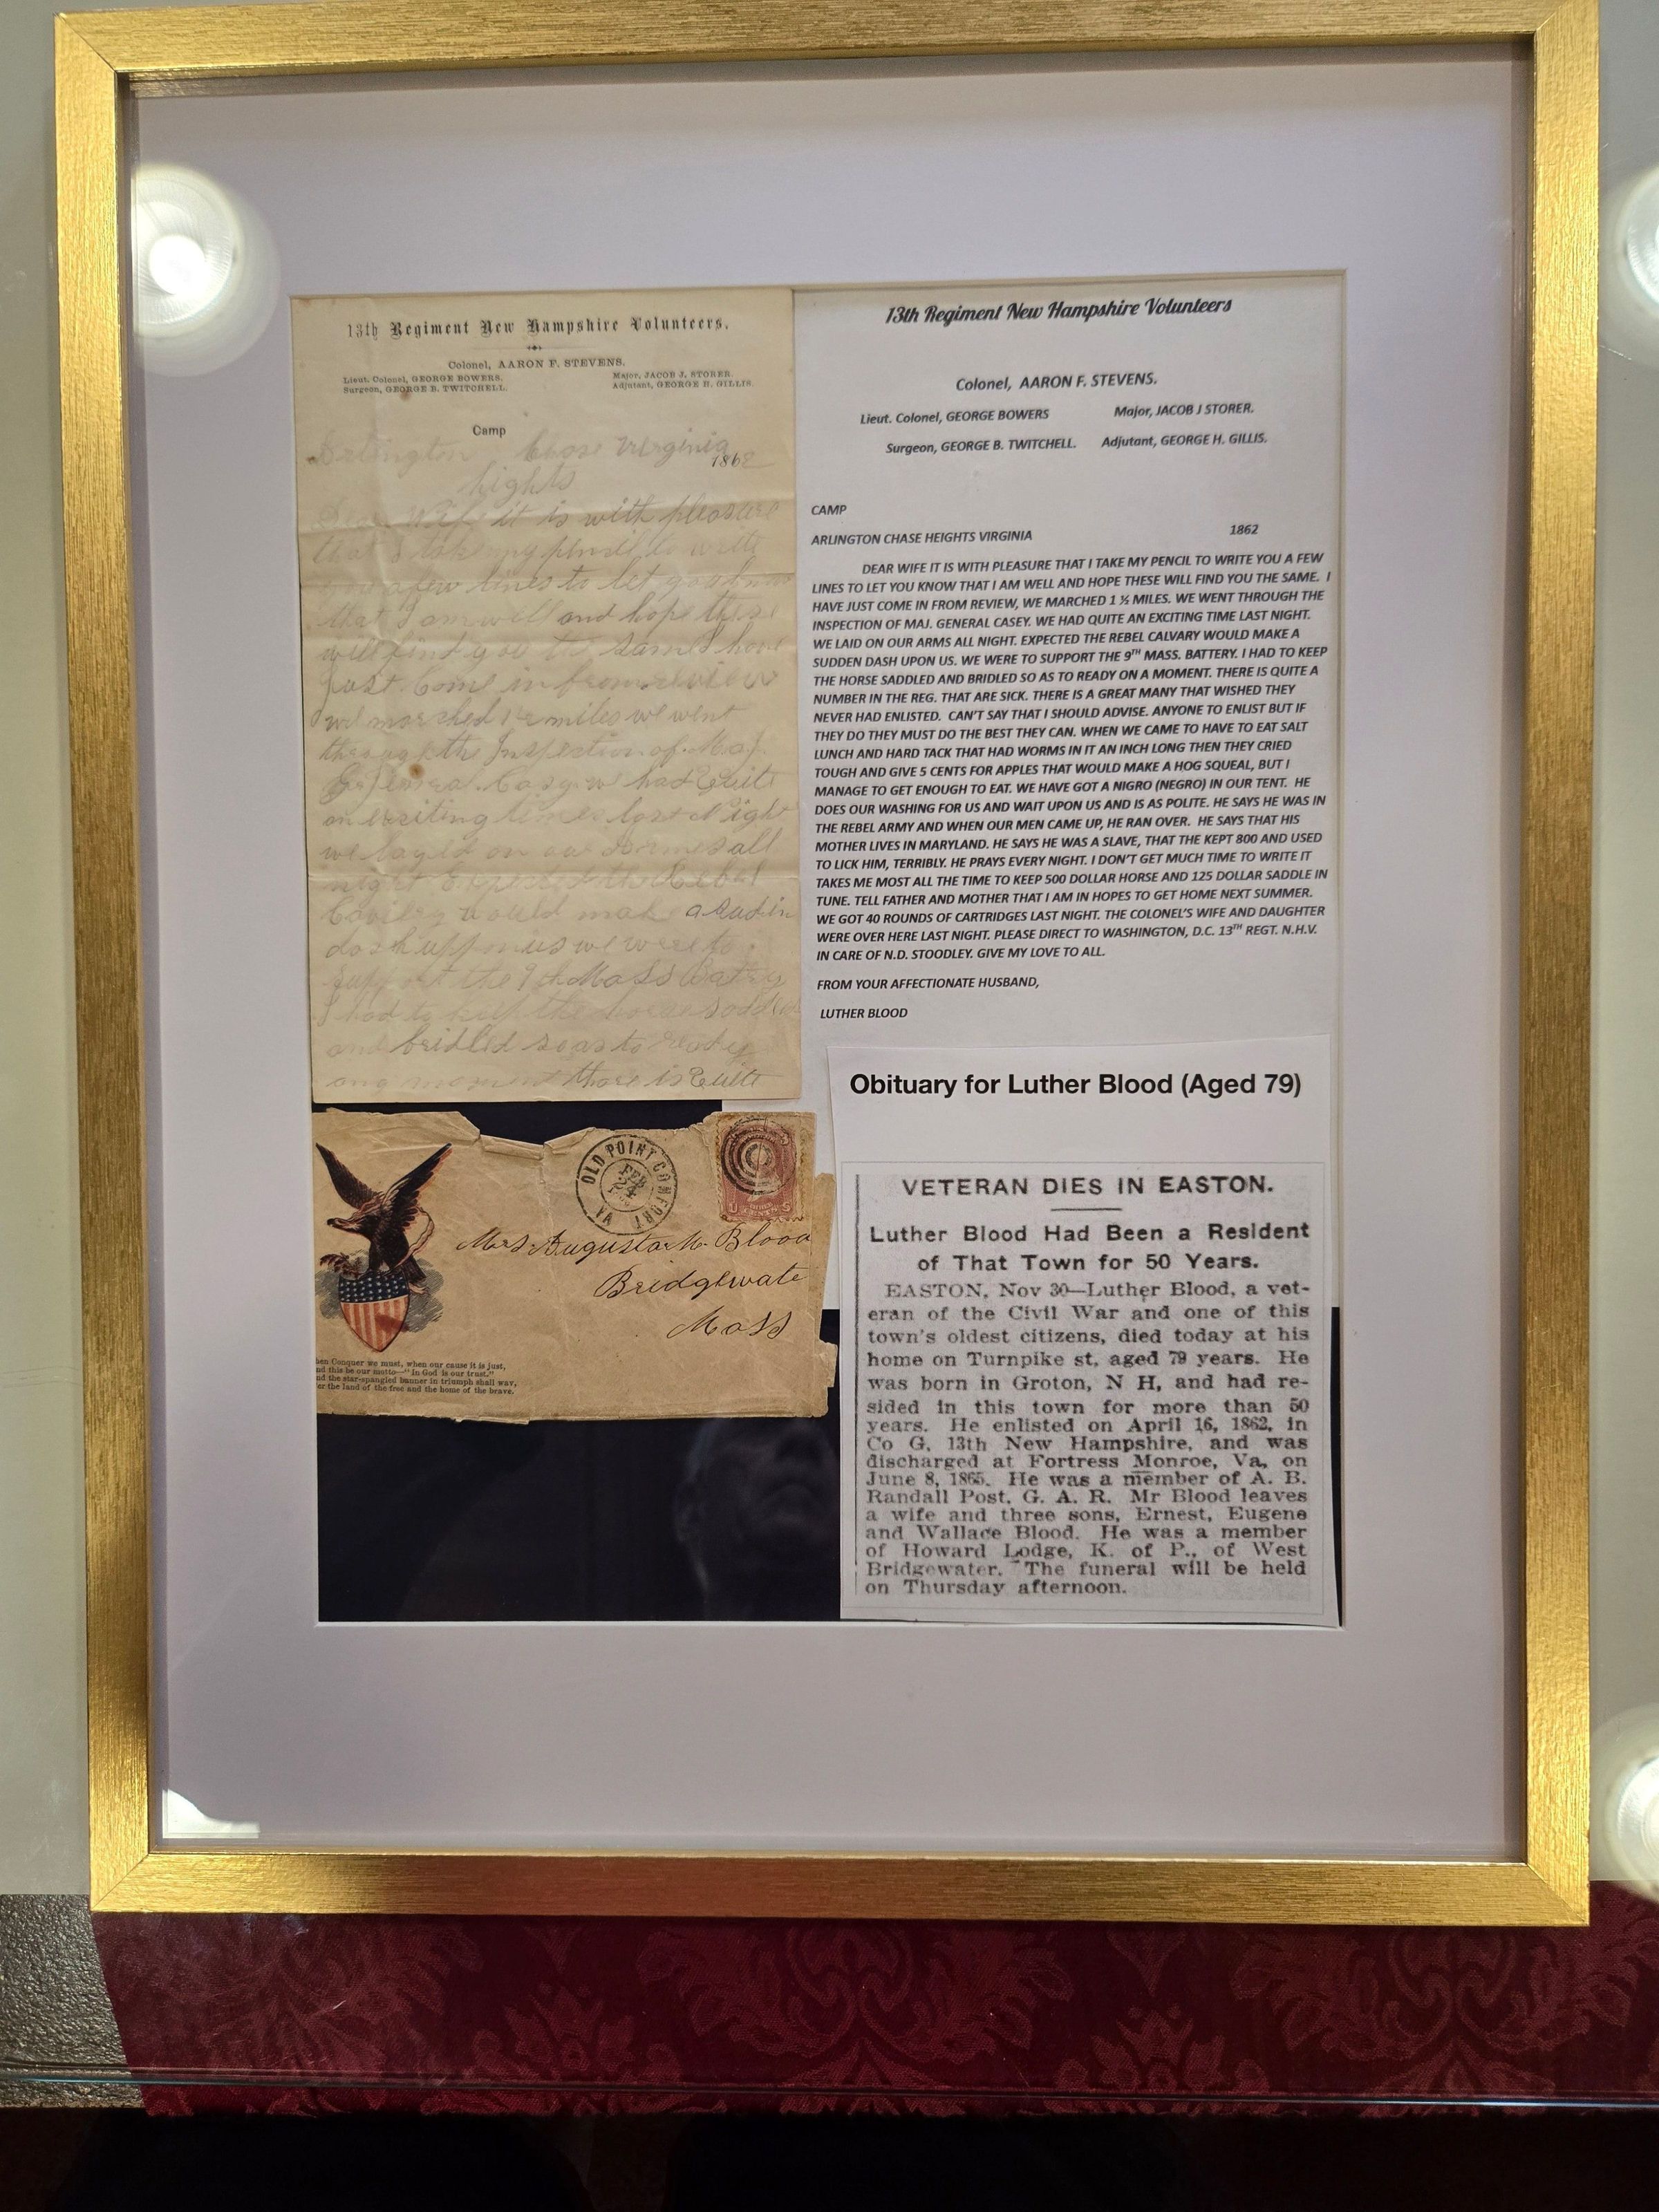 13th Regiment New Hampshire Volunteers.
Colonel, AARON F. STEVENS.
Lieut. Colonel, GEORGE BOWERS.
Major, JACOB J. STORER.
Surgeon, GEORGE B. TWITCHELL.
Adjutant, GEORGE H. GILLIS.
Camp
Arlington Chase Virginia
1862
hights
Dear Wife it is with pleasure
that I take my pencil to write
you a few lines to let you know
that I am well and hope these
will find you the same I have
just Come in from review
we marched 1 1/2 miles we went
through the Inspection of Maj
General Casy we had Quite
an exciting time last Night
we layed on our Armes all
night Expected the Rebel
Cavilry would make a Sudin
dash upp on us we were to
support the 9th Mass Batry
I had to keep the horse saddled
and bridled so as to ready
any moment thare is Quite
13th Regiment New Hampshire Volunteers
Colonel, AARON F. STEVENS.
Lieut. Colonel, GEORGE BOWERS
Major, JACOB J STORER.
Surgeon, GEORGE B. TWITCHELL.
Adjutant, GEORGE H. GILLIS.
CAMP
ARLINGTON CHASE HEIGHTS VIRGINIA 1862
DEAR WIFE IT IS WITH PLEASURE THAT I TAKE MY PENCIL TO WRITE YOU A FEW
LINES TO LET YOU KNOW THAT I AM WELL AND HOPE THESE WILL FIND YOU THE SAME. I
HAVE JUST COME IN FROM REVIEW, WE MARCHED 1 ½ MILES. WE WENT THROUGH THE
INSPECTION OF MAJ. GENERAL CASEY. WE HAD QUITE AN EXCITING TIME LAST NIGHT.
WE LAID ON OUR ARMS ALL NIGHT. EXPECTED THE REBEL CALVARY WOULD MAKE A
SUDDEN DASH UPON US. WE WERE TO SUPPORT THE 9TH MASS. BATTERY. I HAD TO KEEP
THE HORSE SADDLED AND BRIDLED SO AS TO READY ON A MOMENT. THERE IS QUITE A
NUMBER IN THE REG. THAT ARE SICK. THERE IS A GREAT MANY THAT WISHED THEY
NEVER HAD ENLISTED. CAN'T SAY THAT I SHOULD ADVISE. ANYONE TO ENLIST BUT IF
THEY DO THEY MUST DO THE BEST THEY CAN. WHEN WE CAME TO HAVE TO EAT SALT
LUNCH AND HARD TACK THAT HAD WORMS IN IT AN INCH LONG THEN THEY CRIED
TOUGH AND GIVE 5 CENTS FOR APPLES THAT WOULD MAKE A HOG SQUEAL, BUT I
MANAGE TO GET ENOUGH TO EAT. WE HAVE GOT A NIGRO (NEGRO) IN OUR TENT. HE
DOES OUR WASHING FOR US AND WAIT UPON US AND IS AS POLITE. HE SAYS HE WAS IN
THE REBEL ARMY AND WHEN OUR MEN CAME UP, HE RAN OVER. HE SAYS THAT HIS
MOTHER LIVES IN MARYLAND. HE SAYS HE WAS A SLAVE, THAT THE KEPT 800 AND USED
TO LICK HIM, TERRIBLY. HE PRAYS EVERY NIGHT. I DON'T GET MUCH TIME TO WRITE IT
TAKES ME MOST ALL THE TIME TO KEEP 500 DOLLAR HORSE AND 125 DOLLAR SADDLE IN
TUNE. TELL FATHER AND MOTHER THAT I AM IN HOPES TO GET HOME NEXT SUMMER.
WE GOT 40 ROUNDS OF CARTRIDGES LAST NIGHT. THE COLONEL'S WIFE AND DAUGHTER
WERE OVER HERE LAST NIGHT. PLEASE DIRECT TO WASHINGTON, D.C. 13TH REGT. N.H.V.
IN CARE OF N.D. STOODLEY. GIVE MY LOVE TO ALL.
FROM YOUR AFFECTIONATE HUSBAND,
LUTHER BLOOD
OLD POINT COMFORT
VA
Mrs Augusta M. Blood
Bridgewate
Mass
hen Conquer we must, when our cause it is just,
nd this be our motto—"In God is our trust."
nd the star-spangled banner in triumph shall wav,
er the land of the free and the home of the brave.
Obituary for Luther Blood (Aged 79)
VETERAN DIES IN EASTON.
Luther Blood Had Been a Resident
of That Town for 50 Years.
EASTON, Nov 30—Luther Blood, a vet-
eran of the Civil War and one of this
town's oldest citizens, died today at his
home on Turnpike st, aged 79 years. He
was born in Groton, N H, and had re-
sided in this town for more than 50
years. He enlisted on April 16, 1862, in
Co G, 13th New Hampshire, and was
discharged at Fortress Monroe, Va, on
June 8, 1865. He was a member of A. B.
Randall Post, G. A. R. Mr Blood leaves
a wife and three sons, Ernest, Eugene
and Wallace Blood. He was a member
of Howard Lodge, K. of P., of West
Bridgewater. The funeral will be held
on Thursday afternoon.